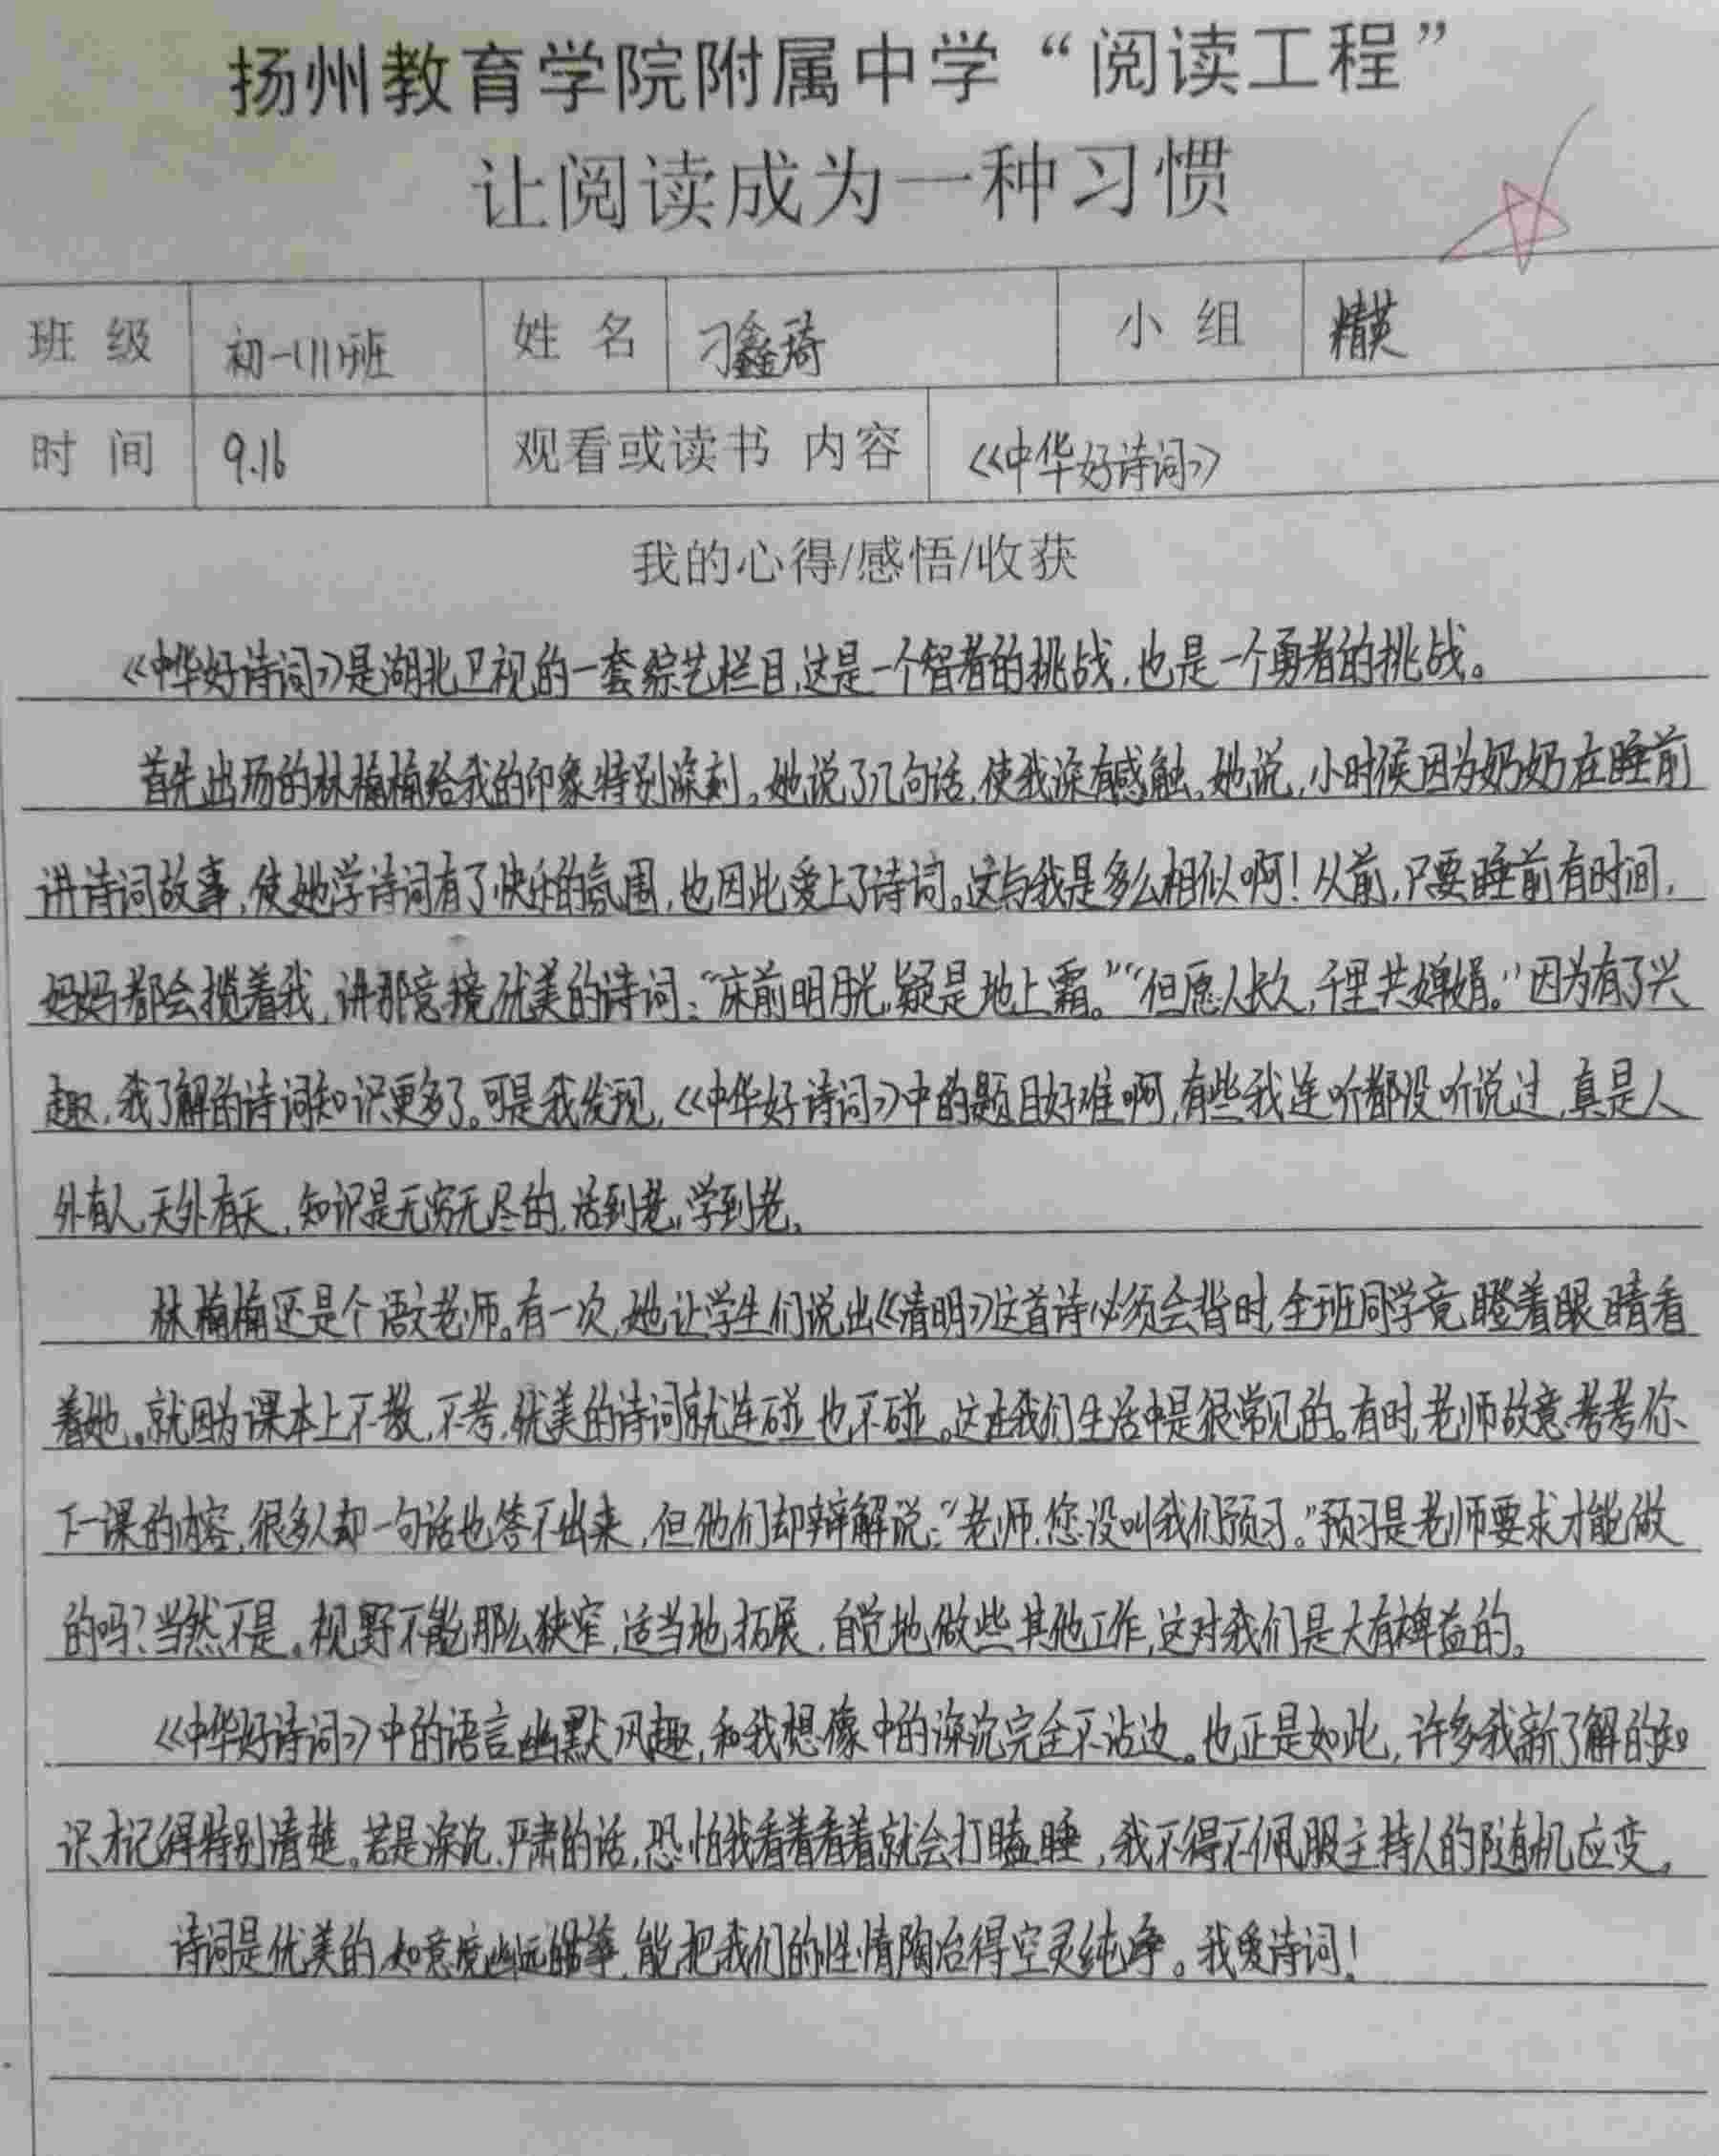 扬州教育学院附属中学“阅读工程”
让阅读成为一种习惯
班级 初一(11)班 姓名 刁鑫琦 小组 精英
时间 9.16 观看或读书 内容 《中华好诗词》
我的心得/感悟/收获
《中华好诗词》是湖北卫视的一套综艺栏目,这是一个智者的挑战,也是一个勇者的挑战。
首先出场的林楠楠给我的印象特别深刻。她说了几句话,使我深有感触。她说,小时候因为奶奶在睡前
讲诗词故事,使她学诗词有了快乐的氛围,也因此爱上了诗词。这与我是多么相似啊!从前,只要睡前有时间,
妈妈都会揽着我,讲那意境优美的诗词:“床前明月光,疑是地上霜。”“但愿人长久,千里共婵娟。”因为有了兴
趣,我了解的诗词知识更多了。可是我发现,《中华好诗词》中的题目好难啊,有些我连听都没听说过,真是人
外有人,天外有天,知识是无穷无尽的,活到老,学到老。
林楠楠还是个语文老师。有一次,她让学生们说出《清明》这首诗必须会背时,全班同学竟瞪着眼睛看
着她。就因为课本上不教,不考,优美的诗词就连碰也不碰。这在我们生活中是很常见的。有时,老师故意考考你
下一课的内容,很多人却一句话也答不出来,但他们却辩解说:“老师,您没叫我们预习。”预习是老师要求才能做
的吗?当然不是。视野不能那么狭窄,适当地拓展,自觉地做些其他工作,这对我们是大有裨益的。
《中华好诗词》中的语言幽默风趣,和我想像中的深沉完全不沾边。也正是如此,许多我新了解的知
识才记得特别清楚。若是深沉、严肃的话,恐怕我看着看着就会打瞌睡,我不得不佩服主持人的随机应变。
诗词是优美的,如意境幽远的故事,能把我们的性情陶冶得空灵纯净。我爱诗词!